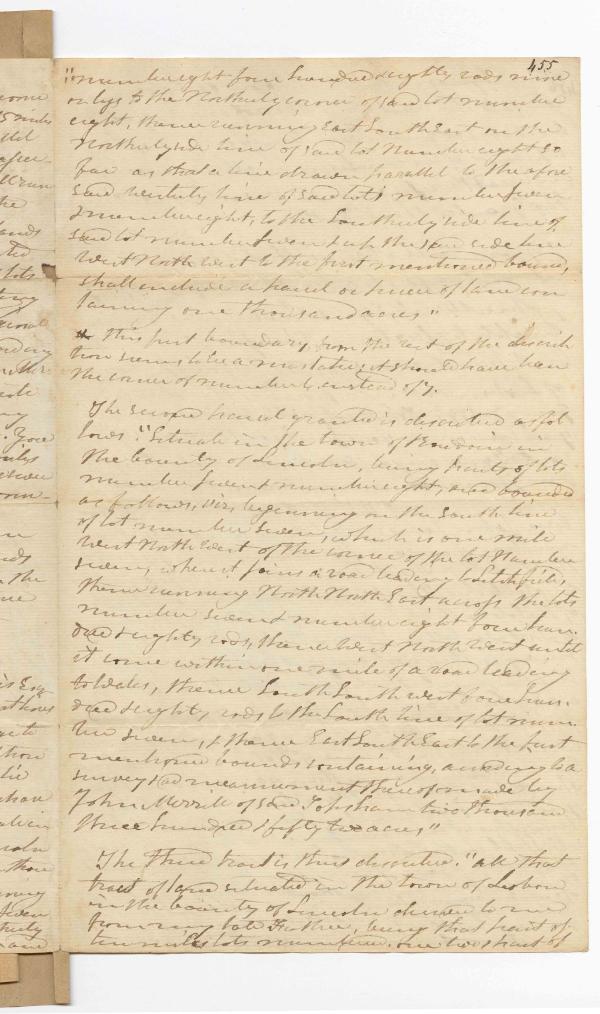 455
"number eight four hundred & eighty rods more
or less to the Northerly corner of said lot number
eight, thence running East South East on the
Northerly side line of said lot Number eight so
far as that a line drawn parallel to the afore
said westerly line of said lots number Seven
& number eight, to the Southerly side line of
said lot number Seven & up the said side line
West North West to the first mentioned bound,
shall include a parcel or piece of land con
taining one thousand acres"
this first boundary from the rest of the descrip
tion seems to be a mistake; it should have been
the corner of number 6 instead of 7.
The second parcel granted is described as fol
lows. "Situate in the town of Bowdoin in
the County of Lincoln, being parts of lots
number Seven & number eight, and bounded
as follows, viz, beginning on the South line
of lot number Seven, which is one mile
West North West of the corner of the lot Number
seven, where it joins a road leading to Litchfield,
thence running North North East across the lots
number seven & number eight four hun-
dred & eighty rods, thence West North West until
it come within one mile of a road leading
to Wales, thence South South West four hun-
dred & eighty rods to the South line of lot num-
ber seven, & thence East South East to the first
mentioned bounds containing, according to a
survey and measurement thereof made by
John Merrill of said Topsham two thousand
three hundred & fifty two acres"
The third tract is thus described. "All that
tract of land situated in the town of Lisbon
in the County of Lincoln devised to me
from my late Father, being that part of
lots numbered one two & part of